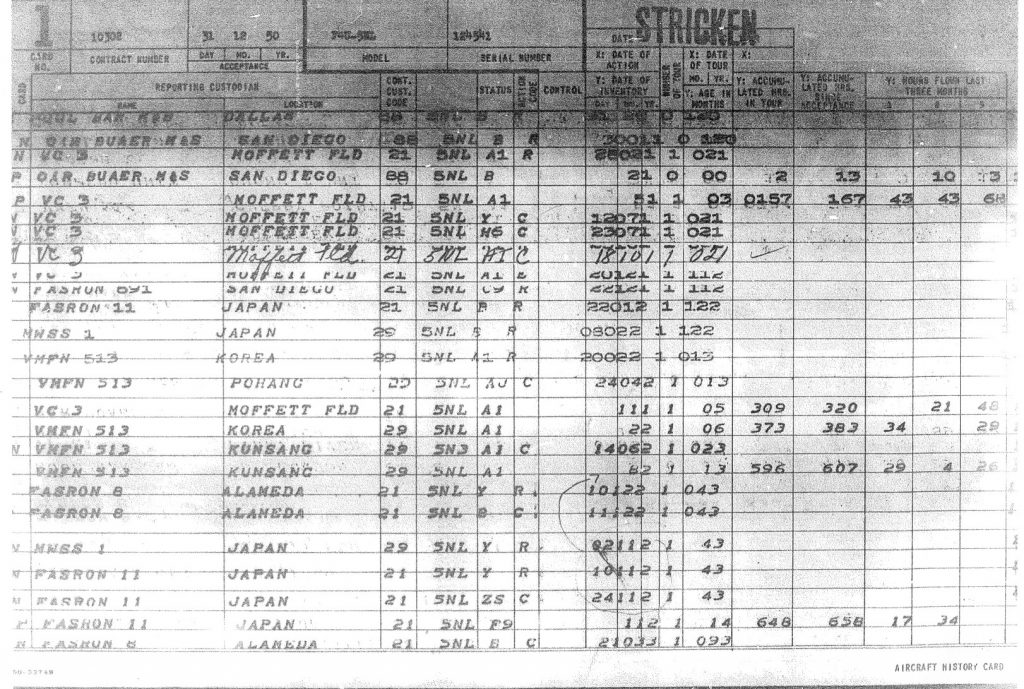 1 10302 31 12 50 F4U-5NL 124541 STRICKEN
DATE
CARD NO. CONTRACT NUMBER DAY MO. YR. MODEL SERIAL NUMBER X: DATE OF ACTION X: DATE OF TOUR X:
ACCEPTANCE
CARD REPORTING CUSTODIAN CONT. CUST. CODE STATUS ACTION CODE CONTROL Y: DATE OF INVENTORY NUMBER OF TOUR MO. YR. Y: ACCUMULATED HRS. IN TOUR Y: ACCUMULATED HRS. SINCE ACCEPTANCE Y: HOURS FLOWN LAST THREE MONTHS
NAME LOCATION DAY MO. YR. Y: AGE IN MONTHS
DALLAS
N OIR BUAER M&S SAN DIEGO 88 5NL B R 30011 0 120
N VC 3 MOFFETT FLD 21 5NL A1 R 28021 1 021
P OIR BUAER M&S SAN DIEGO 88 5NL B 21 0 00 2 13 10 3
P VC 3 MOFFETT FLD 21 5NL A1 51 1 03 0157 167 43 43 68
N VC 3 MOFFETT FLD 21 5NL Y C 12071 1 021
N VC 3 MOFFETT FLD 21 5NL H6 C 23071 1 021
VC 3 Moffett Fld. 21 5NL C 1 021
VC 3 MOFFETT FLD 21 5NL A1 E 20121 1 112
N FASRON 691 SAN DIEGO 21 5NL C9 R 22121 1 112
FASRON 11 JAPAN 21 5NL B R 22012 1 122
MWSS 1 JAPAN 29 5NL B R 08022 1 122
VMFN 513 KOREA 29 5NL A1 R 20022 1 013
VMFN 513 POHANG 5NL C 24042 1 013
VC 3 MOFFETT FLD 21 5NL A1 111 1 05 309 320 21 48
VMFN 513 KOREA 29 5NL A1 22 1 06 373 383 34 29
N VMFN 513 KUNSANG 29 5N3 A1 C 14062 1 023
VMFN 513 KUNSANG 29 5NL A1 82 1 13 596 607 29 4 26
FASRON 8 ALAMEDA 21 5NL Y R 10122 1 043
FASRON 8 ALAMEDA 21 5NL B C 11122 1 043
N MWSS 1 JAPAN 29 5NL Y R 02112 1 43
N FASRON 11 JAPAN 21 5NL Y R 10112 1 43
N FASRON 11 JAPAN 21 5NL ZS C 24112 1 43
P FASRON 11 JAPAN 21 5NL F9 112 1 14 648 658 17 34
N FASRON 8 ALAMEDA 21 5NL B C 21033 1 093
AIRCRAFT HISTORY CARD